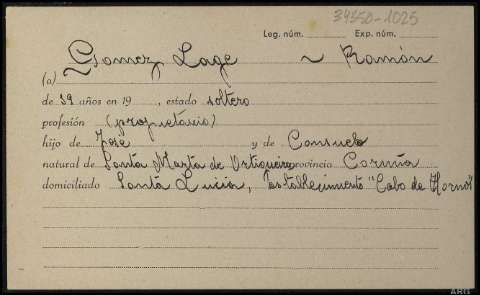 39550-1025
Leg. núm. Exp. núm.
Gomez Lage ~ Ramón
(a)
de 39 años en 19 , estado soltero
profesión (propietario)
hijo de José y de Consuelo
natural de Santa Marta de Ortigueira provincia Coruña
domiciliado Santa Lucia, Establecimiento "Cabo de Hornos"
AHIS